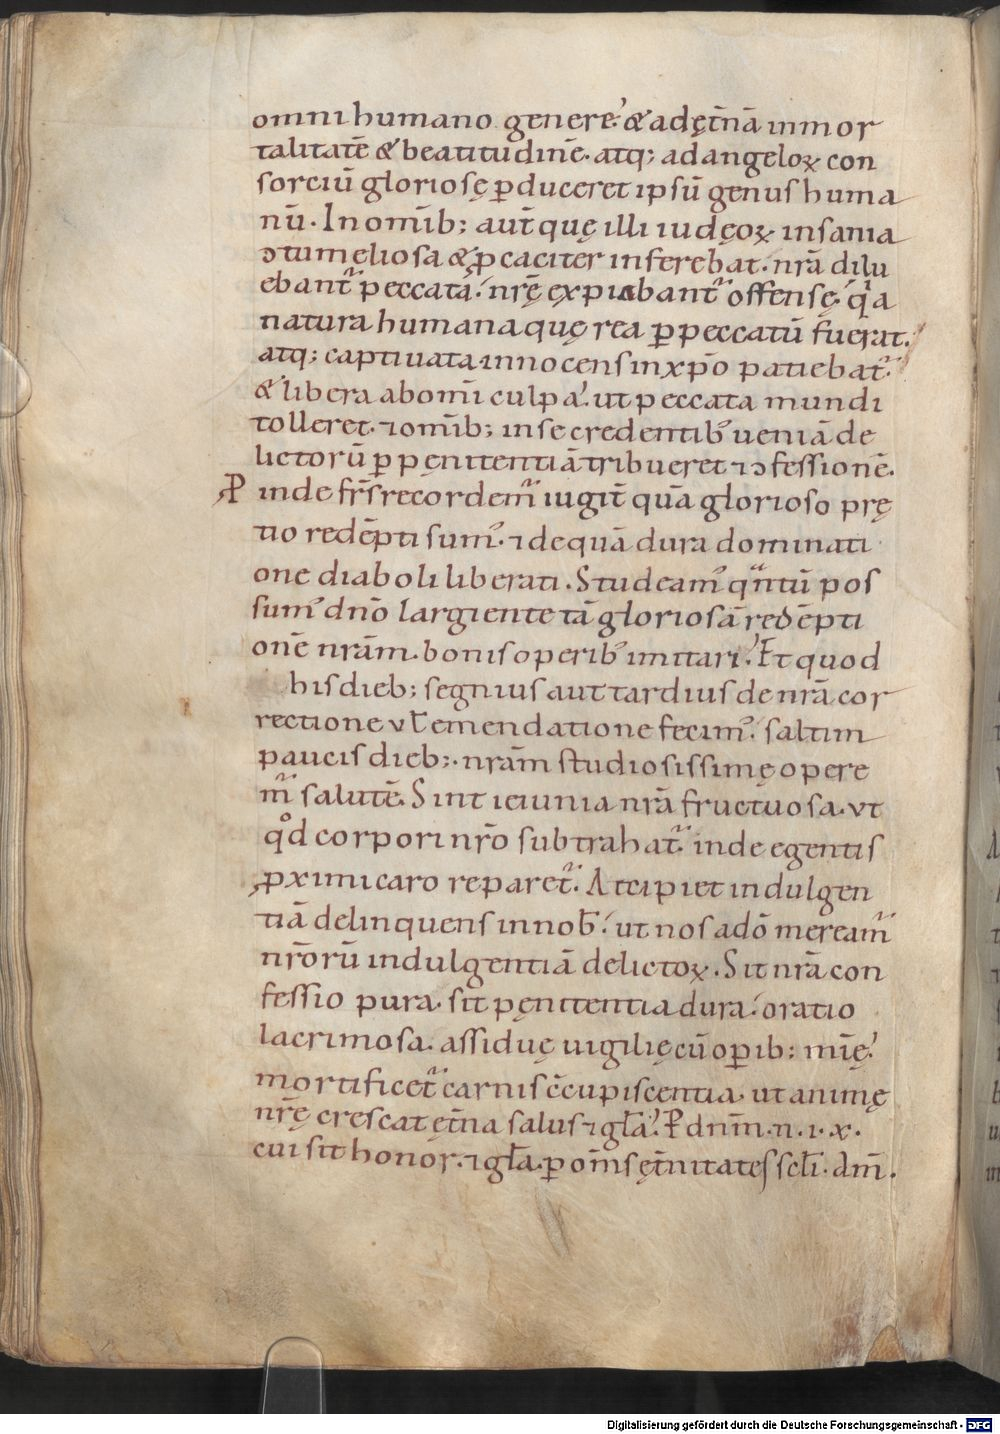 omni humano genere. & ad ęt̄nā inmor
talitatē & beatitudinē. atq; ad angeloꝝ con
sorciū glorioſę ꝑduceret ipsū genus huma
nū. In omīb; aut̄ quę illi iudęoꝝ insania
ↄtumeliosa & ꝓcaciter inferebat. nr̄a dilu
ebant᷑ peccata. nr̄ę expiabant᷑ offensę. qͥa
natura humana quę rea ꝑ peccatū fuerat.
atq; captiuata innocens in xp̄o patiebat᷑.
& libera ab om̄i culpa. ut peccata mundi
tolleret. ⁊ omīb; in se credentib; ueniā de
lictorū ꝑ pęnitentiā tribueret ⁊ ↄfessionē.
P̱inde fr̄s recordem᷑ iugit̄ quā glorioso prę
tio redēpti sumꝰ. ⁊ de quā dura dominati
one diaboli liberati. Studeamꝰ qͣntū pos
sumꝰ dn̄o largiente tā gloriosā redēpti
onē nrām. bonis operibꝰ imitari. Et quod
his dieb; segnius aut tardius de nr̄a cor
rectione vl̄ emendatione fecimꝰ. saltim
paucis dieb;. nrām studiosissimę opere
m᷑ salutē. Sint ieiunia nr̄a fructuosa. vt
qͦd corpori nr̄o subtrahat᷑. inde egentis
ꝓximi caro reparet᷑. Accipiet indulgen
tiā delinquens in nob̄. ut nos a dō meream᷑
nr̄orū indulgentiā delictoꝝ. Sit nr̄a con
fessio pura. sit pęnitentia dura. oratio
lacrimosa. assiduę uigilię cū oꝑib; mīę.
mortificet᷑ carnis ɔ̄cupiscentia. ut animę
nr̄ę crescat ęt̄na salus ⁊ gl̄a. P̱ dnm̄. n. i. x.
cui sit honor. ⁊ gl̄a. ꝑ om̄s ęt̄nitates scl̄i. Am̄.
Digitalisierung gefördert durch die Deutsche Forschungsgemeinschaft - DFG